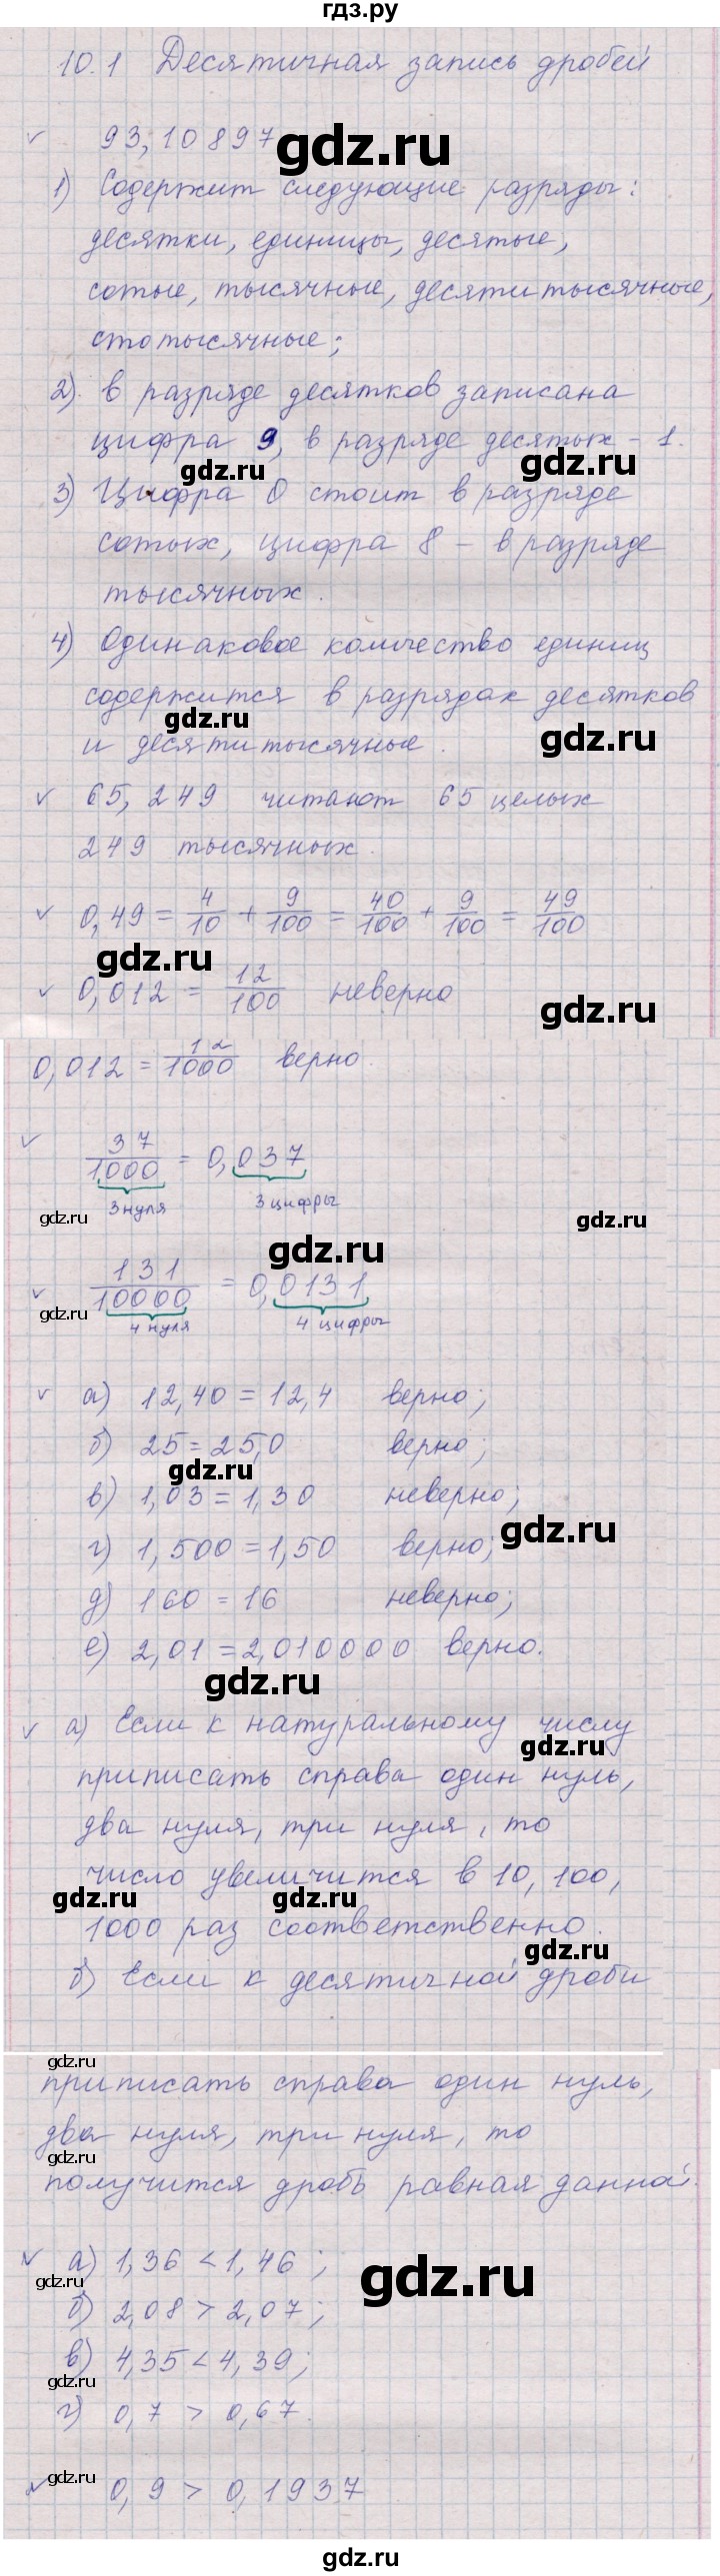 гдз.ру
10.1 Десятичная запись дробей
✓ 93,10897
gdz.ru
1) Содержит следующие разряды:
десятки, единицы, десятые,
сотые, тысячные, десятитысячные,
стотысячные;
2) в разряде десятков записана
цифра 9, в разряде десятых - 1.
gdz.ru gdz.ru
3) Цифра 0 стоит в разряде
сотых, цифра 8 - в разряде
тысячных.
4) Одинаковое количество единиц
содержится в разрядах десятков
gdz.ru gdz.ru
и десятитысячные.
✓ 65,249 читают 65 целых
249 тысячных.
✓ 0,49 = 4/10 + 9/100 = 40/100 + 9/100 = 49/100
gdz.ru
✓ 0,012 = 12/100 неверно
gdz.ru
0,012 = 12/1000 верно.
✓ 37/1000 = 0,037
3 нуля 3 цифры
gdz.ru gdz.ru
gdz.ru
✓ 131/10000 = 0,0131
gdz.ru
4 нуля 4 цифры
✓ а) 12,40 = 12,4 верно;
б) 25 = 25,0 верно;
gdz.ru
в) 1,03 = 1,30 неверно;
gdz.ru
г) 1,500 = 1,50 верно;
д) 160 = 16 неверно;
е) 2,01 = 2,010000 верно.
gdz.ru
✓ а) Если к натуральному числу
gdz.ru
приписать справа один нуль,
два нуля, три нуля, то
число увеличится в 10, 100,
gdz.ru gdz.ru
1000 раз соответственно.
gdz.ru
б) Если к десятичной дроби
gdz.ru
приписать справа один нуль,
два нуля, три нуля, то
gdz.ru
получится дробь равная данной.
✓ а) 1,36 < 1,46;
gdz.ru gdz.ru
б) 2,08 > 2,07;
в) 4,35 < 4,39;
gdz.ru
г) 0,7 > 0,67.
gdz.ru
✓ 0,9 > 0,1937
gdz.ru